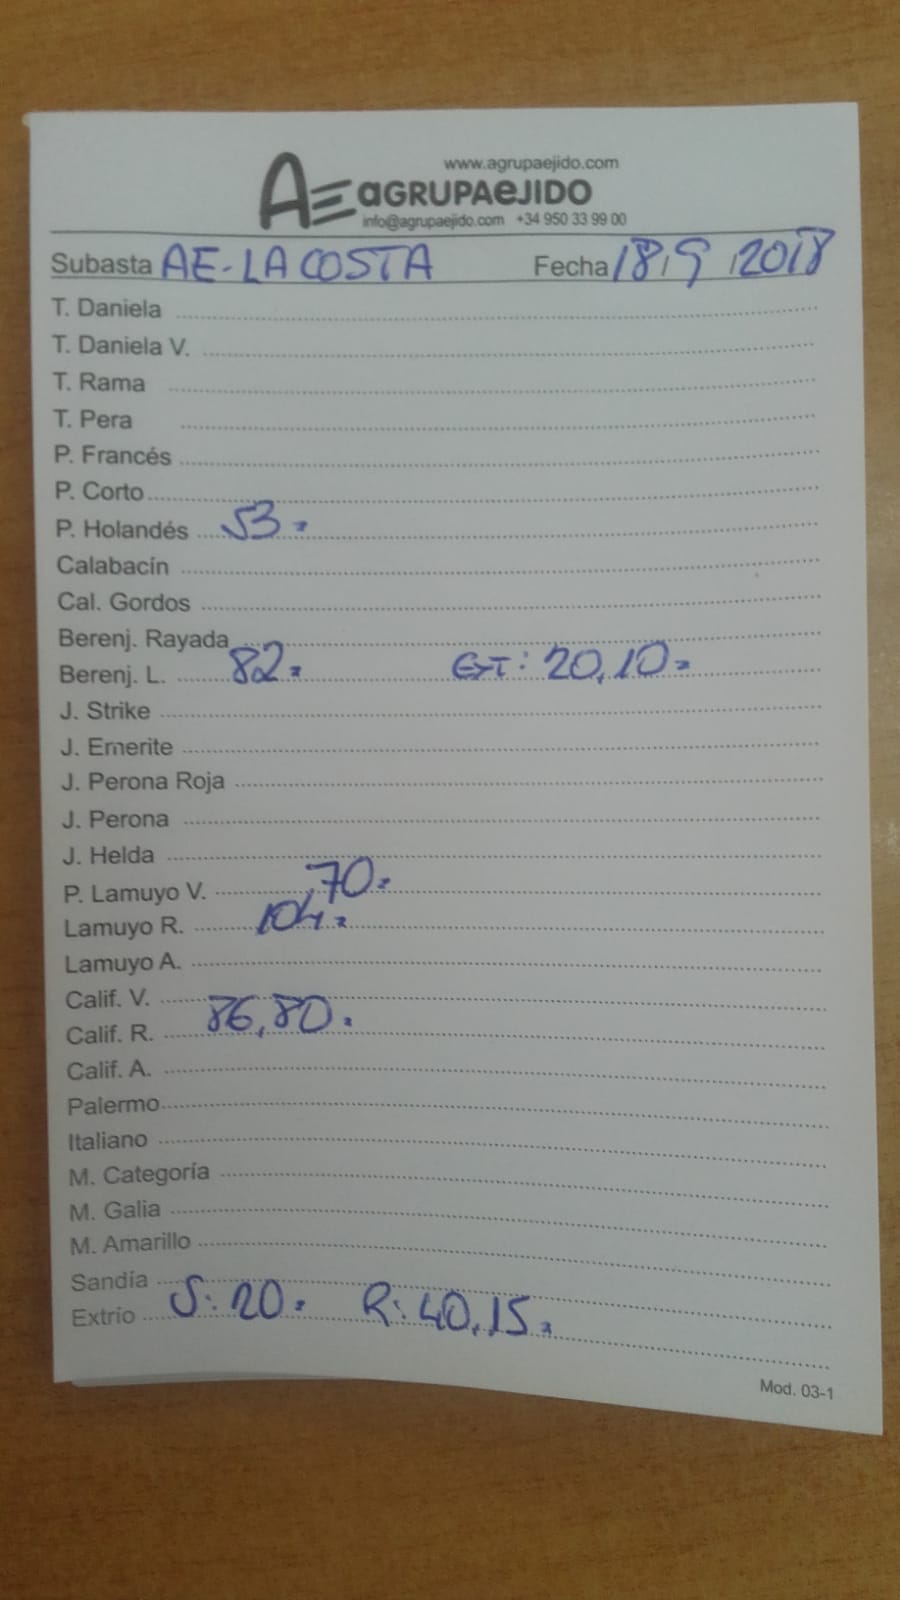 www.agrupaejido.com
AE aGRUPAeJIDO
info@agrupaejido.com +34 950 33 99 00
Subasta AE-LA COSTA Fecha 18/9/2018
T. Daniela
T. Daniela V.
T. Rama
T. Pera
P. Francés
P. Corto
P. Holandés 53
Calabacín
Cal. Gordos
Berenj. Rayada
Berenj. L. 82 EXT: 20,10
J. Strike
J. Emerite
J. Perona Roja
J. Perona
J. Helda
P. Lamuyo V. 70
Lamuyo R. 104
Lamuyo A.
Calif. V.
Calif. R. 86,80
Calif. A.
Palermo
Italiano
M. Categoría
M. Galia
M. Amarillo
Sandía
Extrío S: 20 R: 40,15
Mod. 03-1